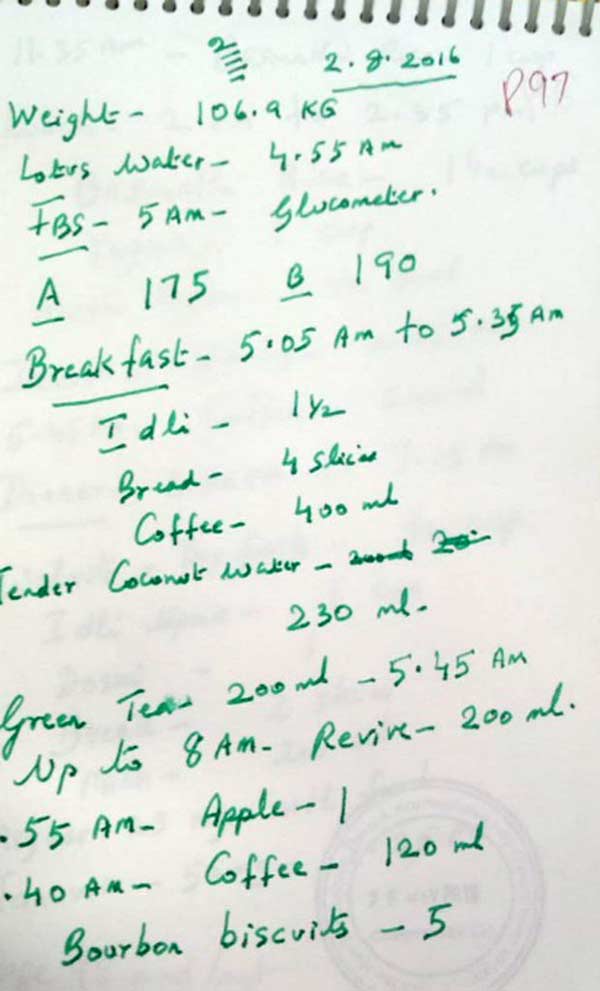 2
2.8.2016
P97
Weight - 106.9 KG
Lotus Water - 4.55 AM
FBS - 5 AM - Glucometer.
A 175 B 190
Breakfast - 5.05 AM to 5.35 AM
Idli - 1½
Bread - 4 slices
Coffee - 400 ml
Tender Coconut Water -
230 ml.
Green Tea - 200 ml - 5.45 AM
Up to 8 AM - Revive - 200 ml.
.55 AM - Apple - 1
.40 AM - Coffee - 120 ml
Bourbon biscuits - 5